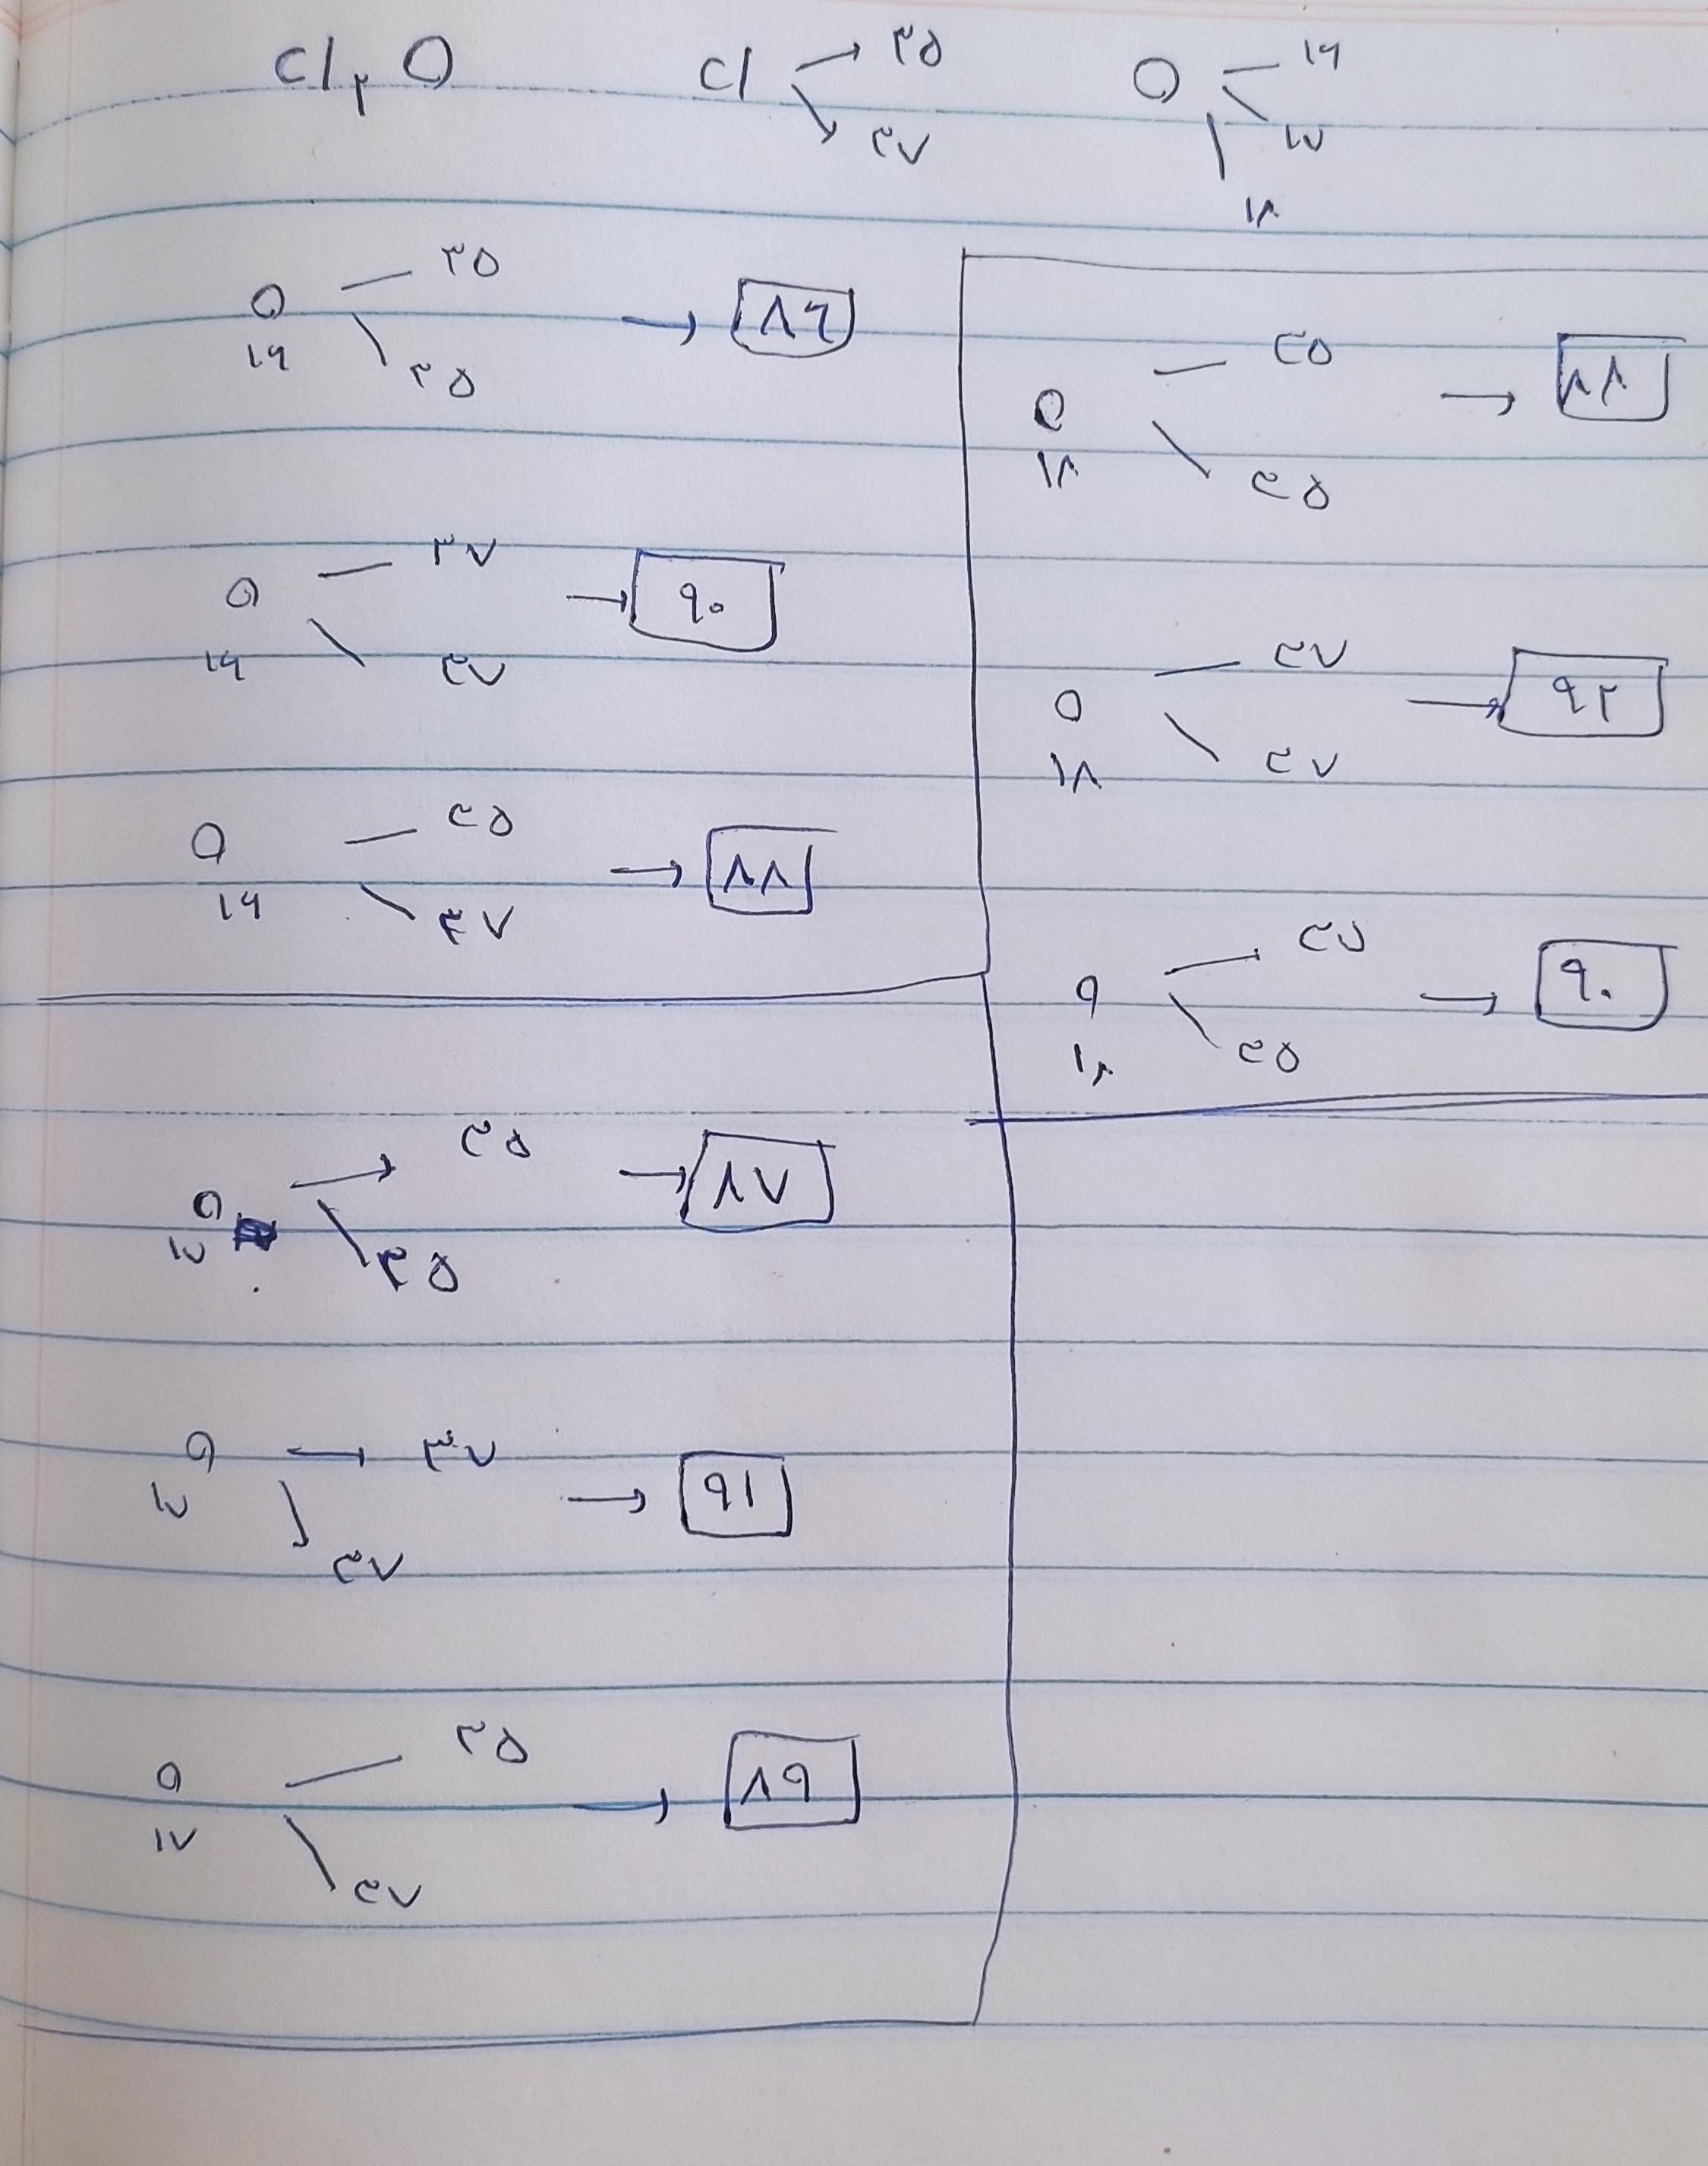 Cl₂O Cl ۳۵ ۳۷ O ۱۶ ۱۷ ۱۸
O ۱۶ ۳۵ ۳۵ → ۸۶
O ۱۶ ۳۷ ۳۷ → ۹۰
O ۱۶ ۳۵ ۳۷ → ۸۸
O ۱۸ ۳۵ ۳۵ → ۸۸
O ۱۸ ۳۷ ۳۷ → ۹۲
O ۱۸ ۳۷ ۳۵ → ۹۰
O ۱۷ ۳۵ ۳۵ → ۸۷
O ۱۷ ۳۷ ۳۷ → ۹۱
O ۱۷ ۳۵ ۳۷ → ۸۹